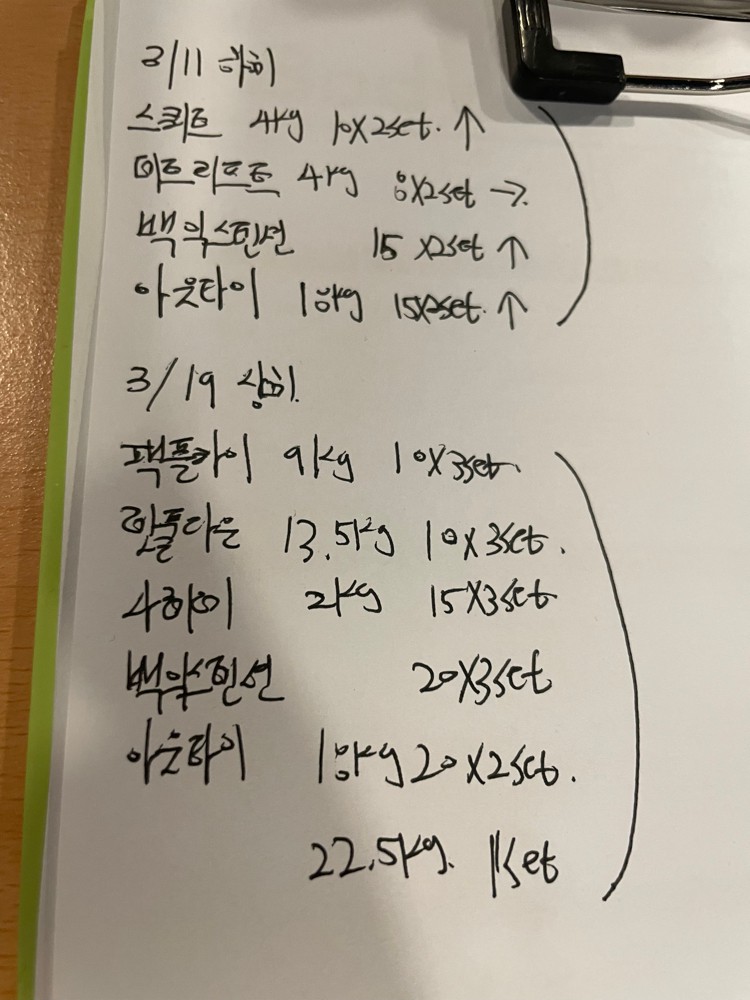 3/11 하비
스쿼트 4kg 10X2set. ↑
데드리프트 4kg 8X2set →
백익스텐션 15 X2set ↑
아웃타이 18kg 15X2set. ↑
3/19 상비
팩플라이 9kg 10X3set.
랫풀다운 13.5kg 10X3set.
사레레 2kg 15X3set
백익스텐션 20X3set
아웃타이 18kg 20X2set.
22.5kg. 1set